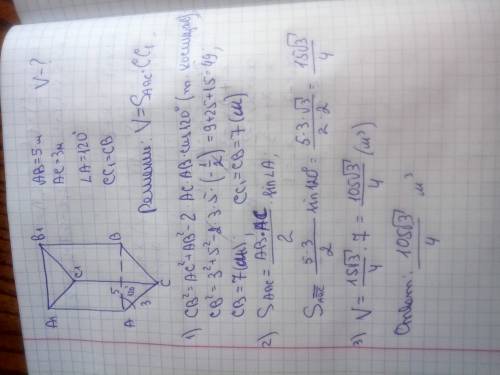 B₁
A₁
C₁
B
A
C
5
120
3
AB=5м
AC=3м
∠A=120°
CC₁=CB
V-?
Решение: V=S_ABC·CC₁.
1) CB²=AC²+AB²-2 AC AB·cos120° (т. косинусов)
CB²=3²+5²-2·3·5·(-1/2)=9+25+15=49,
CB=7(м). CC₁=CB=7(м)
2) S_ABC=AB·AC/2 sin∠A,
S_ABC=5·3/2 sin120°=5·3·√3/2·2=15√3/4
3) V=15√3/4·7=105√3/4 (м³)
Ответ: 105√3/4 м³